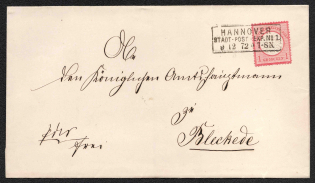 HANNOVER
STADT-POST-EXP. No 1.
9 12 72 7-8N.
An
den Königlichen Amtshauptmann
zu
Bleckede
frei